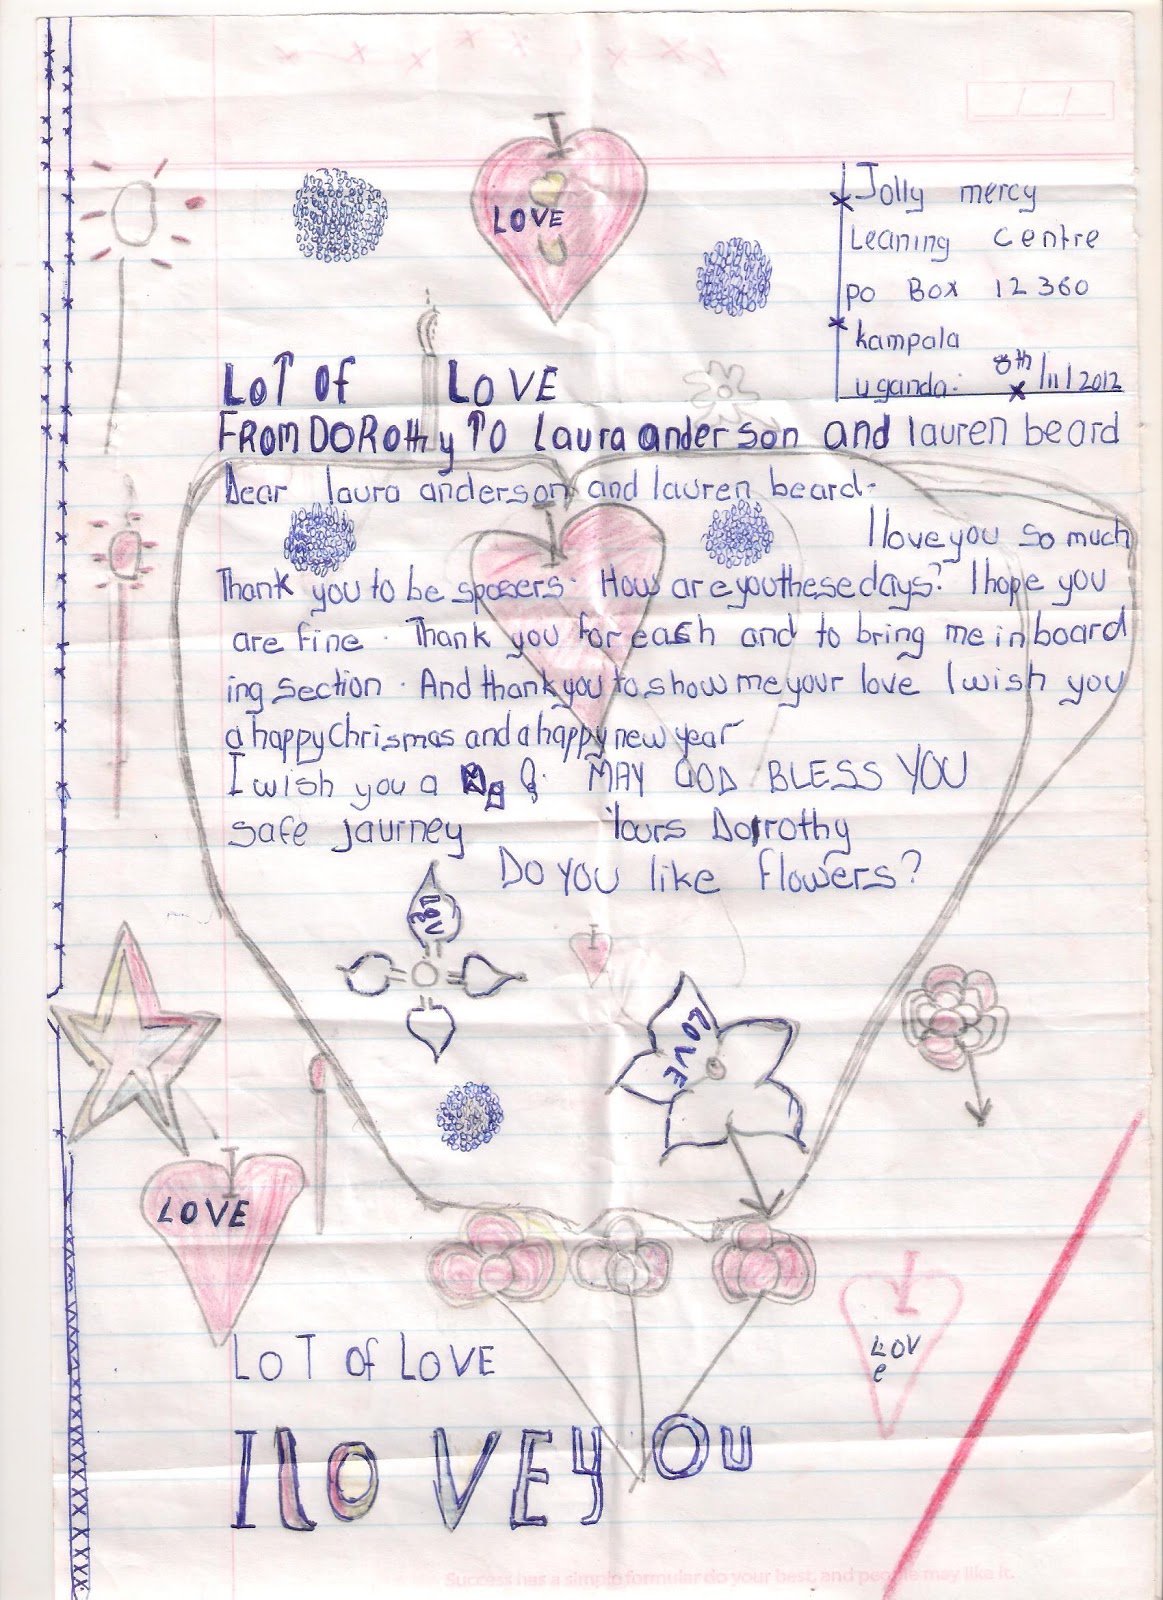 I
LOVE
Jolly mercy
Leaning Centre
po Box 12360
kampala
uganda. 8th/11/2012
LOT Of LOVE
FROM DOROthy TO Laura anderson and lauren beard
Dear laura anderson and lauren beard.
I love you so much
Thank you to be sposers. How are you these days? I hope you
are fine. Thank you for each and to bring me in board
ing section. And thank you to show me your love I wish you
a happy Chrismas and a happy new year
I wish you a MAY GOD BLESS YOU
safe jaurney Yours Dorrothy
Do you like flowers?
LOVE
I
LOVE
I
LOVE
LOT Of LOVE
I
LOV
e
I loVE yOU
Success has a simple formular do your best, and people may like it.